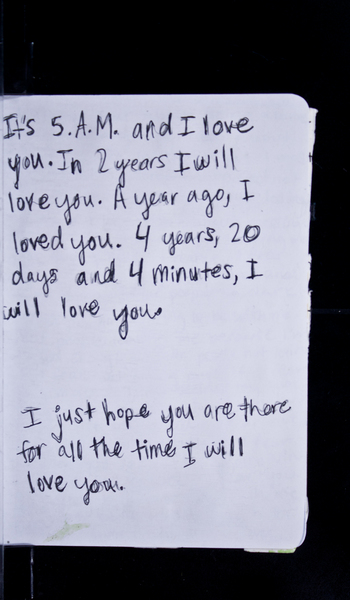 It's 5.A.M. and I love
you. In 2 years I will
love you. A year ago, I
loved you. 4 years, 20
days and 4 minutes, I
will love you.
I just hope you are there
for all the time I will
love you.